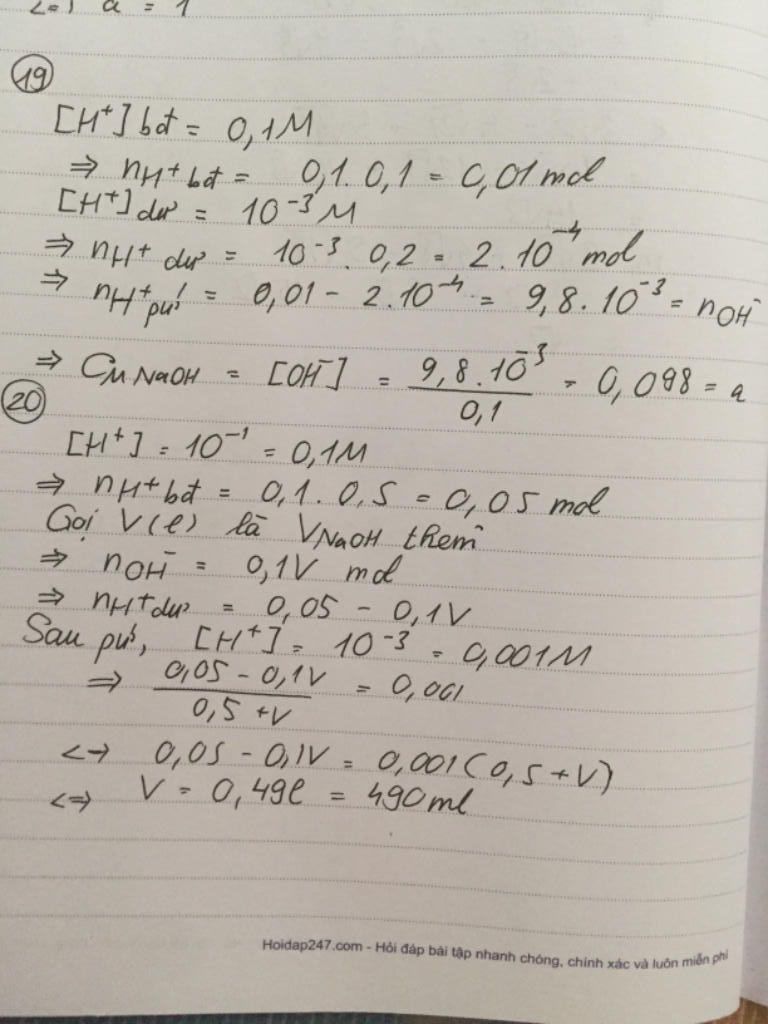 <=> a = 1
19
[H⁺] bđ = 0,1M
=> nH⁺ bđ = 0,1. 0,1 = 0,01 mol
[H⁺] dư = 10⁻³ M
=> nH⁺ dư = 10⁻³. 0,2 = 2.10⁻⁴ mol
=> nH⁺ pứ = 0,01 - 2.10⁻⁴ = 9,8.10⁻³ = nOH⁻
=> CM NaOH = [OH⁻] = 9,8.10⁻³ / 0,1 = 0,098 = a
20
[H⁺] = 10⁻¹ = 0,1M
=> nH⁺ bđ = 0,1. 0,5 = 0,05 mol
Gọi V(l) là VNaOH thêm
=> nOH⁻ = 0,1V mol
=> nH⁺ dư = 0,05 - 0,1V
Sau pứ, [H⁺] = 10⁻³ = 0,001M
=> 0,05 - 0,1V / 0,5 + V = 0,001
<-> 0,05 - 0,1V = 0,001(0,5 + V)
<=> V = 0,49l = 490ml
Hoidap247.com - Hỏi đáp bài tập nhanh chóng, chính xác và luôn miễn phí